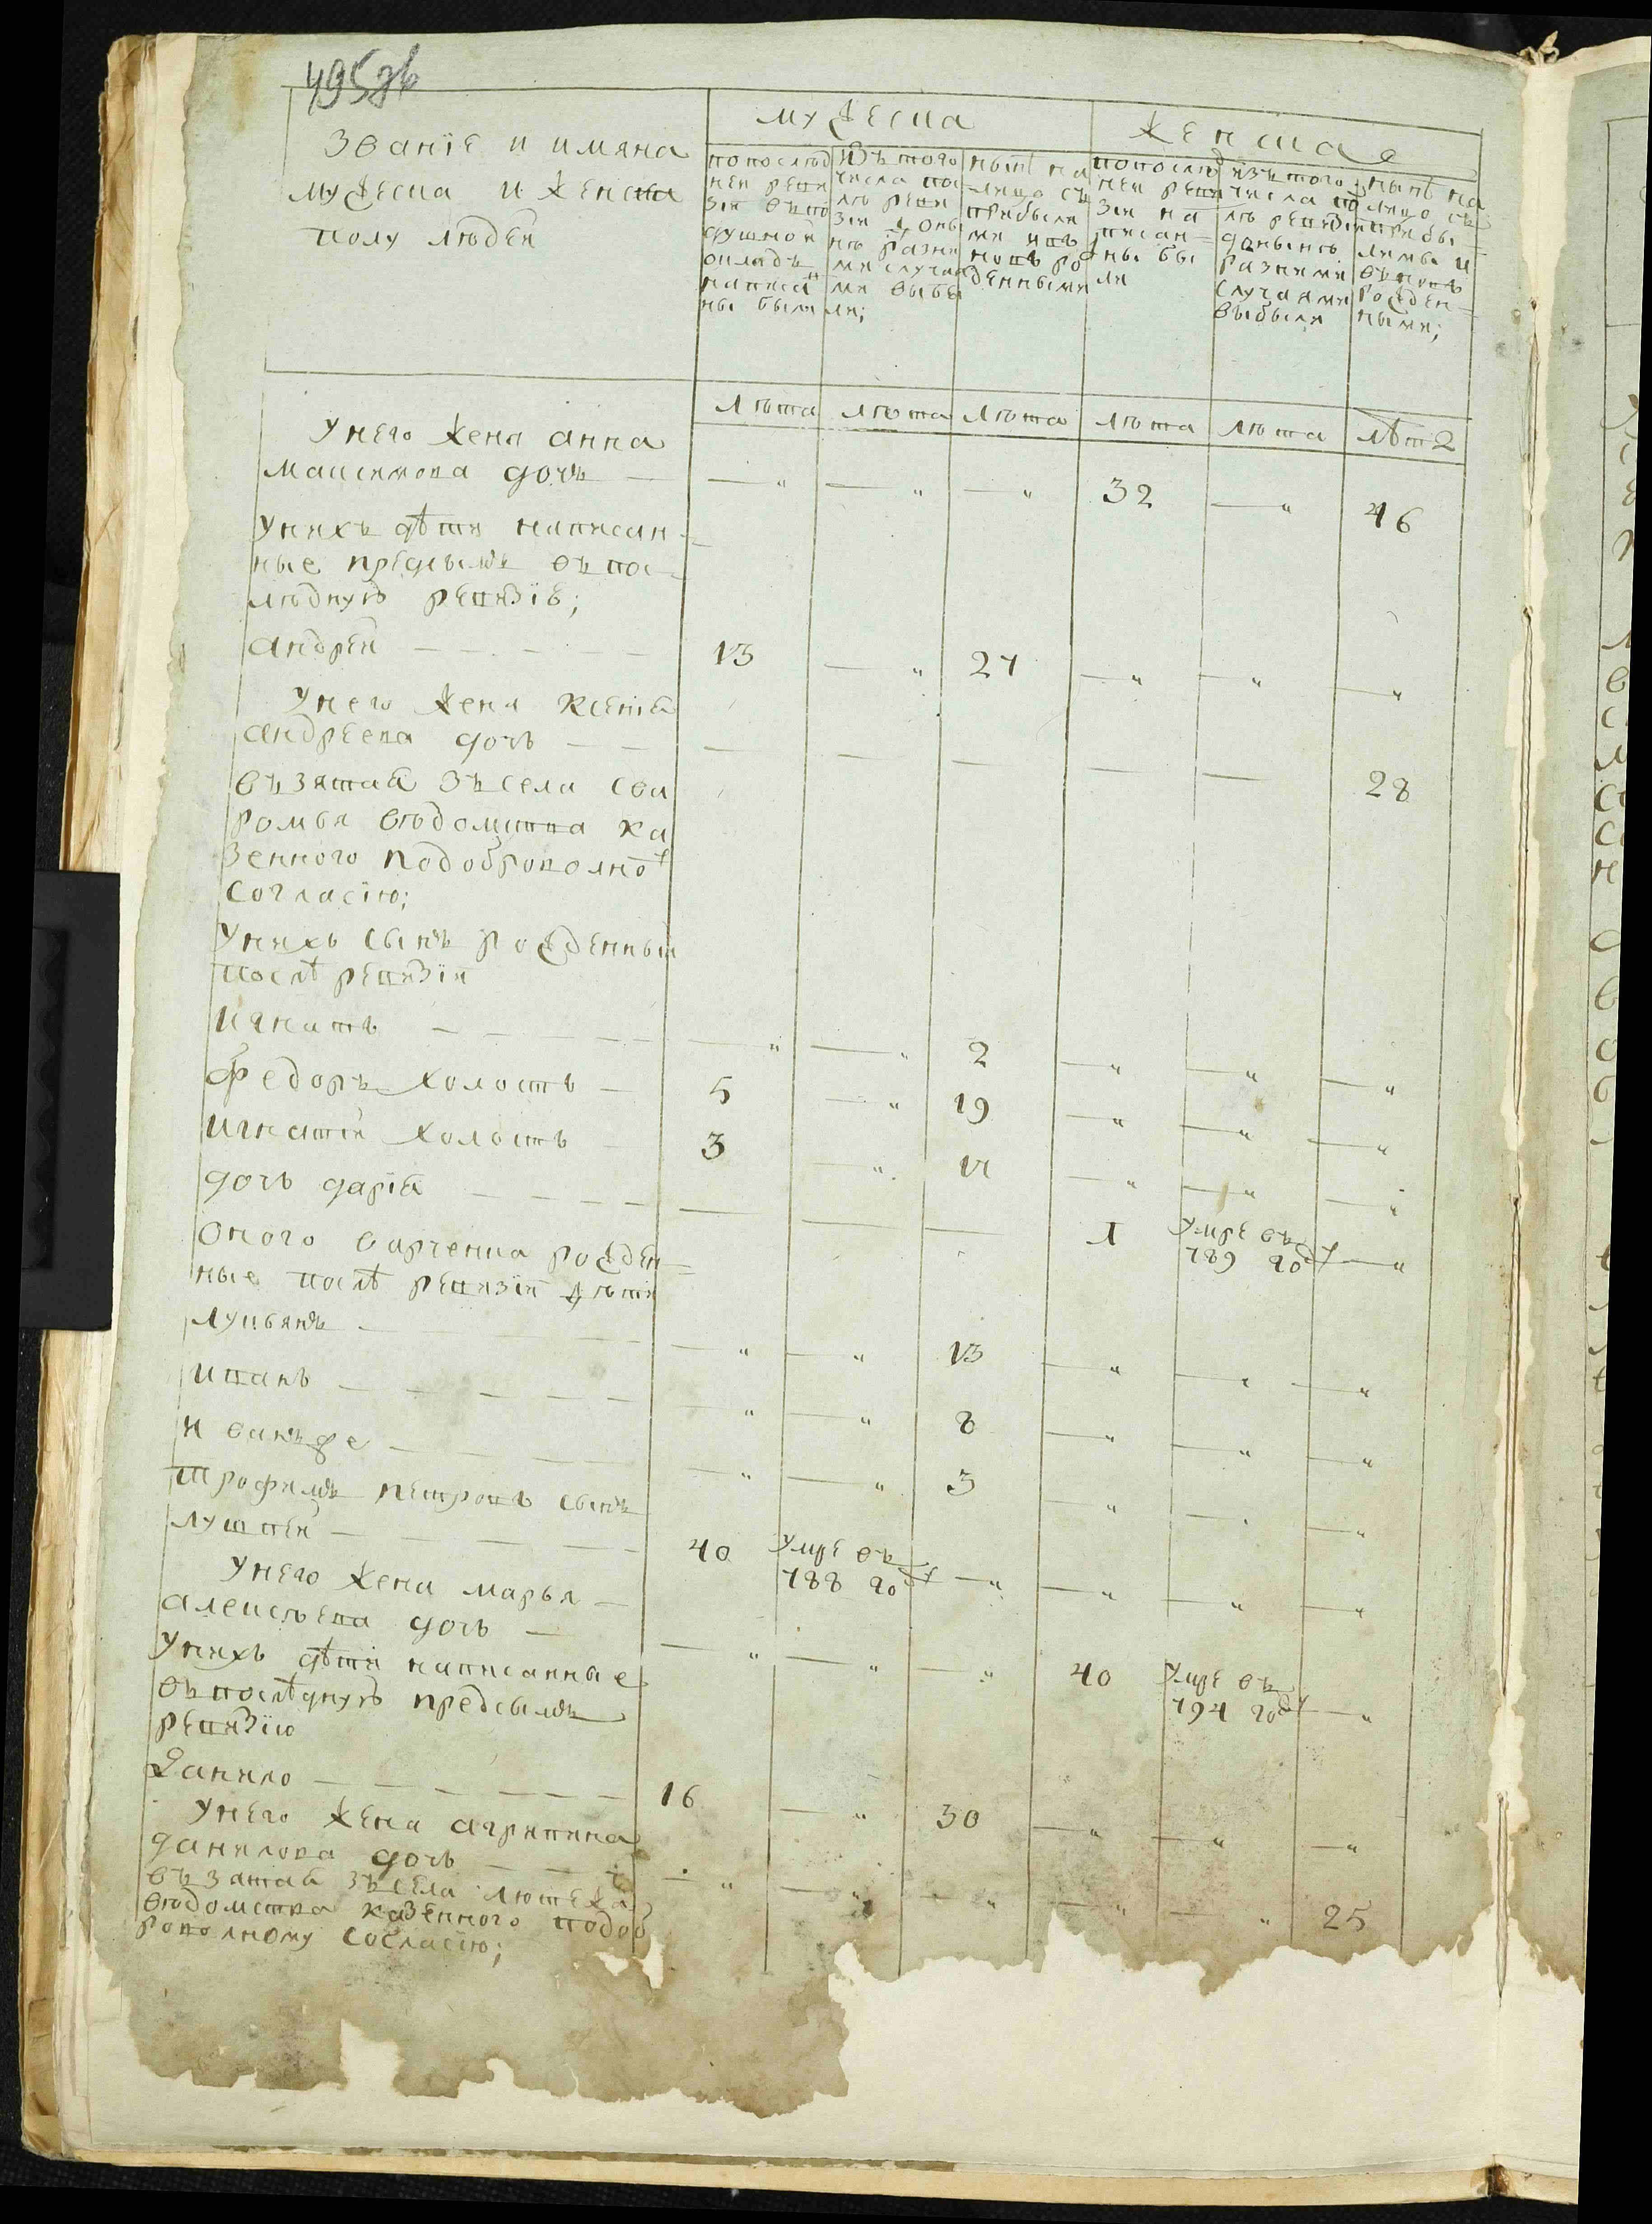 495 об
званїе и имяна
мужеска и женска
полу людей
мужеска
женска
попослѣд
ней реви
зїи въпо
душной
окладъ
написа
ны были
изътого
числа по
лѣ реви
зїи доны
нѣ разны
ми случая
ми выбы
ли;
нынѣ на
лицо съ
прибылы
ми ивъ
новъ ро
жденными
попослѣд
ней реви
зїи на
писан=
ны бы
ли
изътого
числа по
лѣ ревизїи
донынѣ
разными
случаями
выбыли
нынѣ на
лицо съ
прибы=
лыми и
въновъ
рожден=
ными;
лѣта лѣта лѣта лѣта лѣта лѣта
Унего жена анна
максимова дочь — — " — " — " 32 — " 46
Унихъ дѣти написан-
ные предъимъ въпос-
лѣднуюъ ревизїю;
андрей — — — — — 13 — " 27 — " — " — "
Унего жена ксенїя
андреева дочь — — — — — — — 28
възятая зъсела ска
ромья вѣдомства ка
зенного подоброволно
согласїю;
Унихъ сынъ рожденный
послѣ ревизїи
игнатъ — — — — — " — " 2 — " — " — "
федоръ холостъ — 5 — " 19 — " — " — "
игнатїй холостъ — 3 — " 17 — " — " — "
дочь дарїя — — — — — — — 1 Умре въ
789 году — "
оного варченка рожден=
ные послѣ ревизїи дѣти
лукьянъ — — — — — " — " 13 — " — " — "
иванъ — — — — — " — " 8 — " — " — "
и ванъде — — — — — " — " 3 — " — " — "
трофимъ петровъ сынъ
лушпѣй — — — — 40 Умре въ
788 году — " — " — " — "
Унего жена марья —
алексѣева дочь — — " — " — " 40 Умре въ
794 году — "
Унихъ дѣти написанные
въпослѣднуюъ предсымъ
ревизїю
Данило — — — — — 16 — " 30 — " — " — "
Унего жена агрипина
данилова дочь — — — " — " — " — " — " 25
възятая зъсела лютежа
вѣдомства казенного подоб
роволному согласїю;